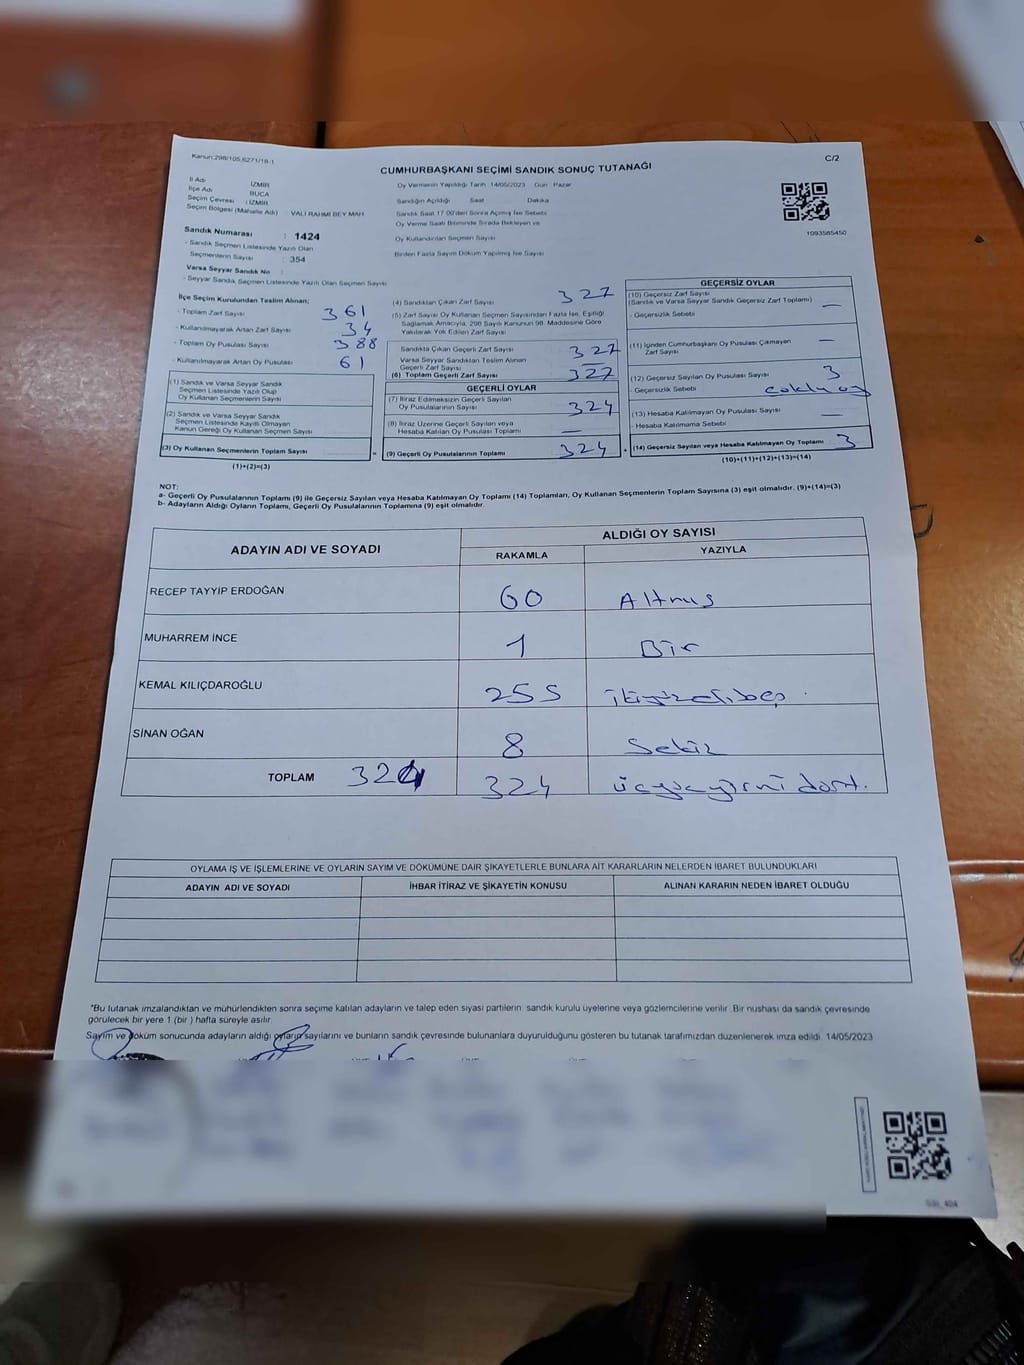 Kanun:298/105,6271/18-1
C/2
CUMHURBAŞKANI SEÇİMİ SANDIK SONUÇ TUTANAĞI
İl Adı : İZMİR
İlçe Adı : BUCA
Seçim Çevresi : İZMİR
Seçim Bölgesi (Mahalle Adı) : VALİ RAHMİ BEY MAH
Sandık Numarası : 1424
- Sandık Seçmen Listesinde Yazılı Olan
Seçmenlerin Sayısı : 354
Varsa Seyyar Sandık No :
- Seyyar Sandık Seçmen Listesinde Yazılı Olan Seçmen Sayısı
Oy Vermenin Yapıldığı Tarih 14/05/2023 Gün Pazar
Sandığın Açıldığı Saat Dakika
Sandık Saat 17.00'den Sonra Açılmış İse Sebebi
Oy Verme Saati Bitiminde Sırada Bekleyen ve
Oy Kullandırılan Seçmen Sayısı
Birden Fazla Sayım Döküm Yapılmış İse Sayısı
1093585450
İlçe Seçim Kurulundan Teslim Alınan;
- Toplam Zarf Sayısı 361
- Kullanılmayarak Artan Zarf Sayısı 34
- Toplam Oy Pusulası Sayısı 388
- Kullanılmayarak Artan Oy Pusulası 61
(1) Sandık ve Varsa Seyyar Sandık
Seçmen Listesinde Yazılı Olup
Oy Kullanan Seçmenlerin Sayısı
(2) Sandık ve Varsa Seyyar Sandık
Seçmen Listesinde Kayıtlı Olmayan
Kanun Gereği Oy Kullanan Seçmen Sayısı
(3) Oy Kullanan Seçmenlerin Toplam Sayısı =
(1)+(2)=(3)
(4) Sandıktan Çıkan Zarf Sayısı 327
(5) Zarf Sayısı Oy Kullanan Seçmen Sayısından Fazla İse, Eşitliği
Sağlamak Amacıyla, 298 Sayılı Kanunun 98. Maddesine Göre
Yakılarak Yok Edilen Zarf Sayısı
Sandıkta Çıkan Geçerli Zarf Sayısı 327
Varsa Seyyar Sandıktan Teslim Alınan
Geçerli Zarf Sayısı
(6) Toplam Geçerli Zarf Sayısı 327
GEÇERLİ OYLAR
(7) İtiraz Edilmeksizin Geçerli Sayılan
Oy Pusulalarının Sayısı 324
(8) İtiraz Üzerine Geçerli Sayılan veya
Hesaba Katılan Oy Pusulası Toplamı —
(9) Geçerli Oy Pusulalarının Toplamı 324 +
GEÇERSİZ OYLAR
(10) Geçersiz Zarf Sayısı
(Sandık ve Varsa Seyyar Sandık Geçersiz Zarf Toplamı) —
- Geçersizlik Sebebi
(11) İçinden Cumhurbaşkanı Oy Pusulası Çıkmayan —
Zarf Sayısı
(12) Geçersiz Sayılan Oy Pusulası Sayısı 3
- Geçersizlik Sebebi çoklu oy
(13) Hesaba Katılmayan Oy Pusulası Sayısı —
- Hesaba Katılmama Sebebi
(14) Geçersiz Sayılan veya Hesaba Katılmayan Oy Toplamı 3
(10)+(11)+(12)+(13)=(14)
NOT:
a- Geçerli Oy Pusulalarının Toplamı (9) ile Geçersiz Sayılan veya Hesaba Katılmayan Oy Toplamı (14) Toplamları, Oy Kullanan Seçmenlerin Toplam Sayısına (3) eşit olmalıdır. (9)+(14)=(3)
b- Adayların Aldığı Oyların Toplamı, Geçerli Oy Pusulalarının Toplamına (9) eşit olmalıdır.
ADAYIN ADI VE SOYADI ALDIĞI OY SAYISI
RAKAMLA YAZIYLA
RECEP TAYYİP ERDOĞAN 60 Altmış
MUHARREM İNCE 1 Bir
KEMAL KILIÇDAROĞLU 255 ikiyüzellibeş
SİNAN OĞAN 8 Sekiz
TOPLAM 324 324 üçyüzyirmi dört.
OYLAMA İŞ VE İŞLEMLERİNE VE OYLARIN SAYIM VE DÖKÜMÜNE DAİR ŞİKAYETLERLE BUNLARA AİT KARARLARIN NELERDEN İBARET BULUNDUKLARI
ADAYIN ADI VE SOYADI İHBAR İTİRAZ VE ŞİKAYETİN KONUSU ALINAN KARARIN NEDEN İBARET OLDUĞU
*Bu tutanak imzalandıktan ve mühürlendikten sonra seçime katılan adayların ve talep eden siyasi partilerin sandık kurulu üyelerine veya gözlemcilerine verilir. Bir nüshası da sandık çevresinde
görülecek bir yere 1 (bir ) hafta süreyle asılır.
Sayım ve döküm sonucunda adayların aldığı oyların sayılarını ve bunların sandık çevresinde bulunanlara duyurulduğunu gösteren bu tutanak tarafımızdan düzenlenerek imza edildi. 14/05/2023